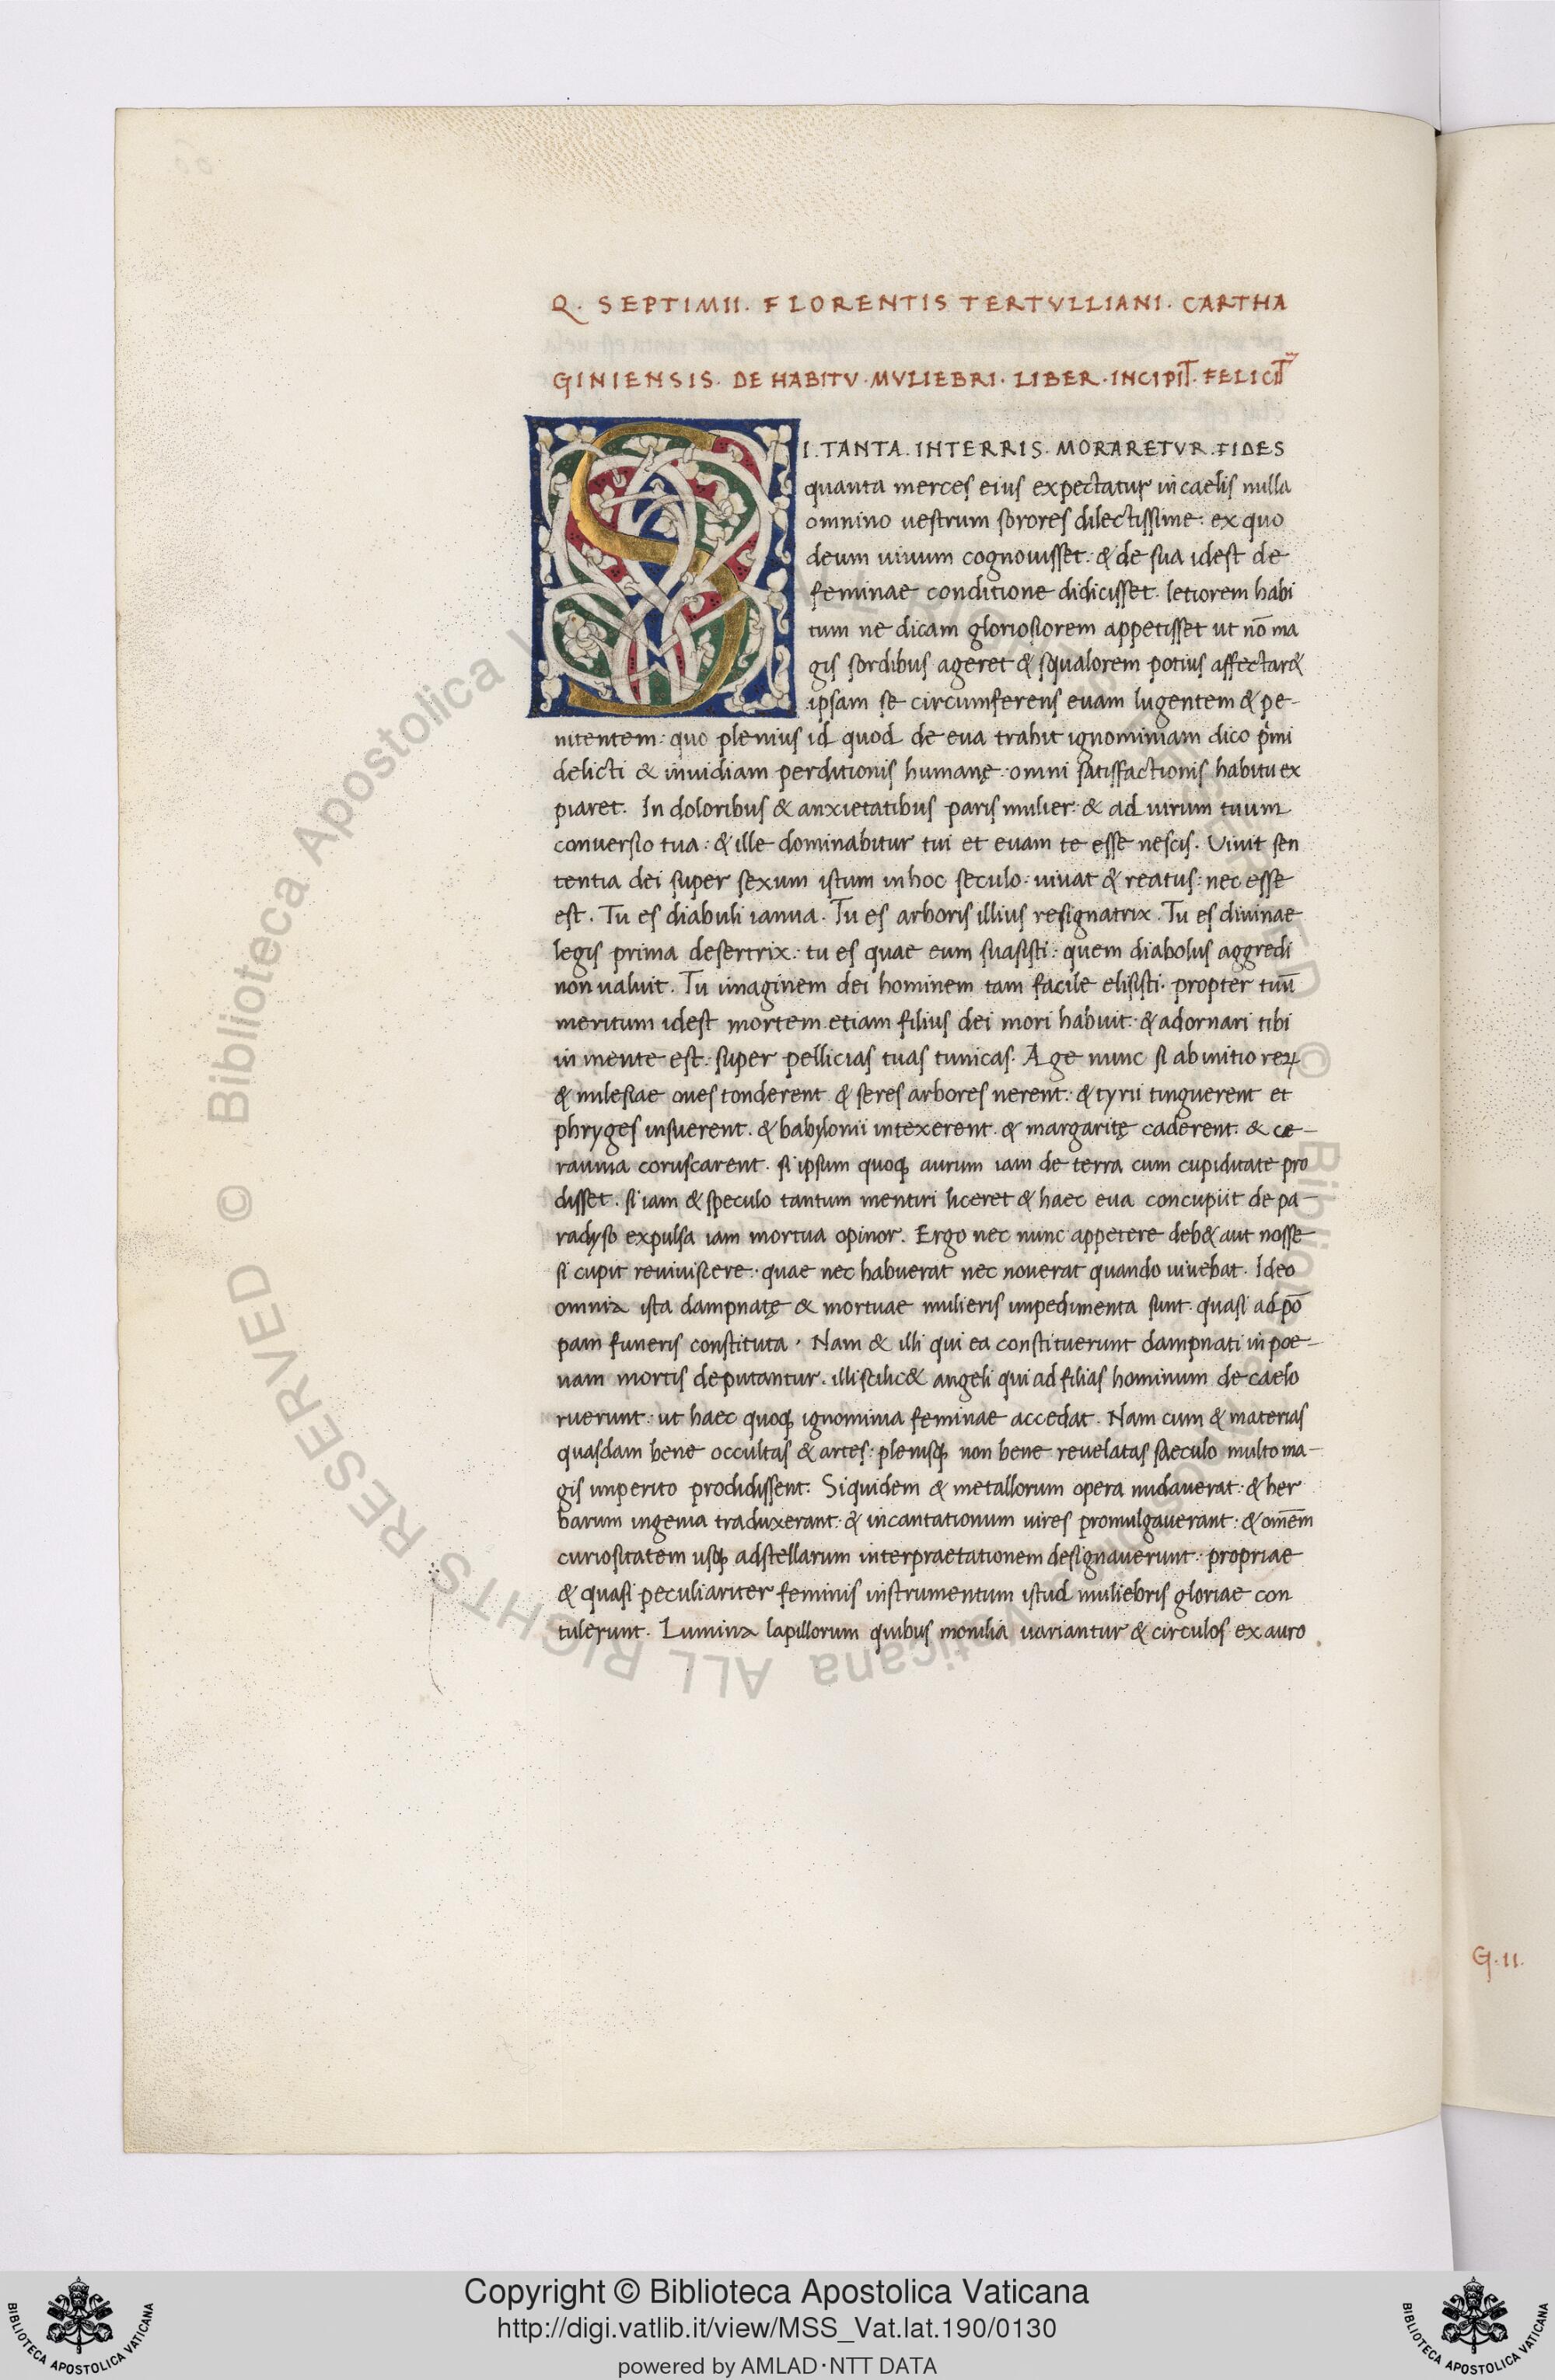 Q. SEPTIMII. FLORENTIS TERTVLLIANI. CARTHA
GINIENSIS. DE HABITV. MVLIEBRI. LIBER. INCIPIT. FELICIT̅
SI. TANTA. INTERRIS. MORARETVR. FIDES
quanta merces eius expectatur in caelis nulla
omnino uestrum sorores dilectissime: ex quo
deum uiuum cognouisset: & de sua idest de
feminae conditione didicisset. letiorem habi
tum ne dicam gloriosiorem appetisset ut nō ma
gis sordibus ageret & squalorem potius affectar&
ipsam se circumferens euam lugentem & pe-
nitentem: quo plenius id quod de eua trahit ignominiam dico p̍mi
delicti & inuidiam perditionis humanę: omni satisfactionis habitu ex
piaret. In doloribus & anxietatibus paris mulier: & ad uirum tuum
conuersio tua: & ille dominabitur tui et euam te esse nescis. Uiuit sen
tentia dei super sexum istum in hoc seculo: uiuat & reatus: nec esse
est. Tu es diabuli ianua. Tu es arboris illius resignatrix. Tu es diuinae
legis prima desertrix: tu es quae eum suasisti: quem diabolus aggredi
non ualuit. Tu imaginem dei hominem tam facile elisisti. propter tuū
meritum idest mortem etiam filius dei mori habuit: & adornari tibi
in mente est: super pellicias tuas tunicas. Age nunc si ab initio reꝝ
& milesiae oues tonderent & seres arbores nerent: & tyrii tinguerent et
phryges insuerent. & babylonii intexerent. & margaritę caderent. & ce-
raunia coruscarent. si ipsum quoq; aurum iam de terra cum cupiditate pro
disset. si iam & speculo tantum mentiri liceret & haec eua concupiit de pa-
radyso expulsa iam mortua opinor. Ergo nec nunc appetere deb& aut nosse
si cupit reuiuiscere: quae nec habuerat nec nouerat quando uiuebat. Ideo
omnia ista dampnatę & mortuae mulieris impedimenta sunt. quasi ad pō
pam funeris constituta. Nam & illi qui ea constituerunt dampnati in poe-
nam mortis deputantur. illi scilic& angeli qui ad filias hominum de caelo
ruerunt: ut haec quoq; ignominia feminae accedat. Nam cum & materias
quasdam bene occultas & artes: plerisq; non bene reuelatas saeculo multo ma-
gis imperito prodidissent: Siquidem & metallorum opera nudauerat: & her
barum ingenia traduxerant: & incantationum uires promulgauerant: & om̄em
curiositatem usq; ad stellarum interpraetationem designauerunt: propriae
& quasi peculiariter feminis instrumentum istud muliebris gloriae con
tulerunt. Lumina lapillorum quibus monilia uariantur & circulos ex auro
G. II.
© Biblioteca Apostolica Vaticana ALL RIGHTS RESERVED
Copyright © Biblioteca Apostolica Vaticana
http://digi.vatlib.it/view/MSS_Vat.lat.190/0130
powered by AMLAD·NTT DATA
BIBLIOTECA APOSTOLICA VATICANA
BIBLIOTECA APOSTOLICA VATICANA